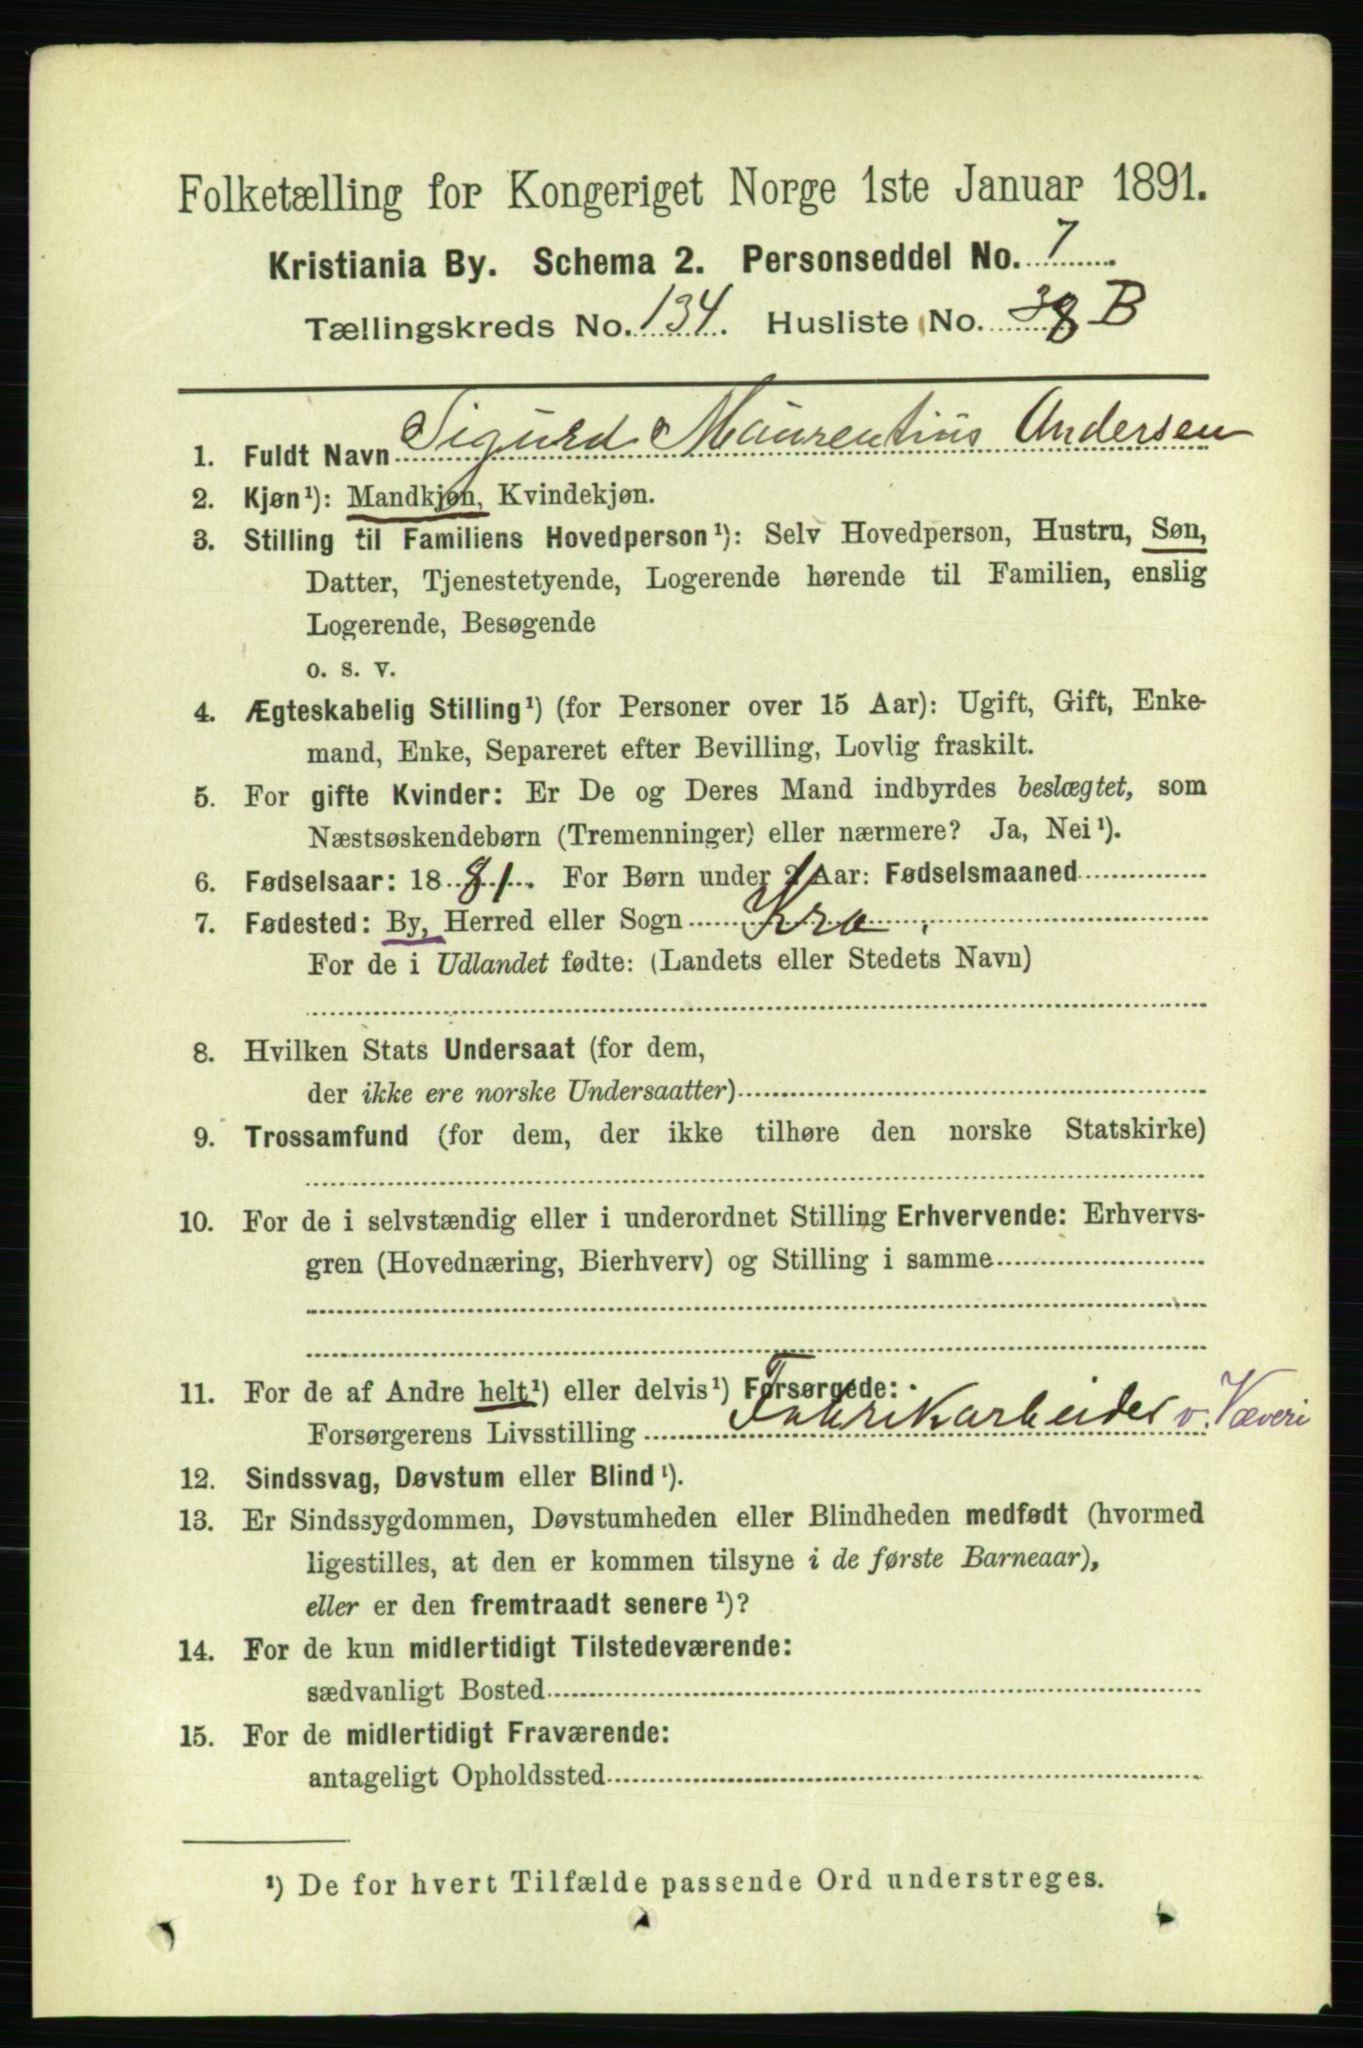 Folketælling for Kongeriget Norge 1ste Januar 1891.
Kristiania By. Schema 2. Personseddel No. 7
Tællingskreds No. 134. Husliste No. 38 B
1. Fuldt Navn Sigurd Maurentius Andersen
2. Kjøn¹): Mandkjøn, Kvindekjøn.
3. Stilling til Familiens Hovedperson¹): Selv Hovedperson, Hustru, Søn,
Datter, Tjenestetyende, Logerende hørende til Familien, enslig
Logerende, Besøgende
o. s. v.
4. Ægteskabelig Stilling¹) (for Personer over 15 Aar): Ugift, Gift, Enke-
mand, Enke, Separeret efter Bevilling, Lovlig fraskilt.
5. For gifte Kvinder: Er De og Deres Mand indbyrdes beslægtet, som
Næstsøskendebørn (Tremenninger) eller nærmere? Ja, Nei¹).
6. Fødselsaar: 1881. For Børn under 2 Aar: Fødselsmaaned
7. Fødested: By, Herred eller Sogn Kra
For de i Udlandet fødte: (Landets eller Stedets Navn)
8. Hvilken Stats Undersaat (for dem,
der ikke ere norske Undersaatter)
9. Trossamfund (for dem, der ikke tilhøre den norske Statskirke)
10. For de i selvstændig eller i underordnet Stilling Erhvervende: Erhvervs-
gren (Hovednæring, Bierhverv) og Stilling i samme
11. For de af Andre helt¹) eller delvis¹) Forsørgede:
Forsørgerens Livsstilling Fabrikarbeider v. Væveri
12. Sindssvag, Døvstum eller Blind¹).
13. Er Sindssygdommen, Døvstumheden eller Blindheden medfødt (hvormed
ligestilles, at den er kommen tilsyne i de første Barneaar),
eller er den fremtraadt senere¹)?
14. For de kun midlertidigt Tilstedeværende:
sædvanligt Bosted
15. For de midlertidigt Fraværende:
antageligt Opholdssted
¹) De for hvert Tilfælde passende Ord understreges.